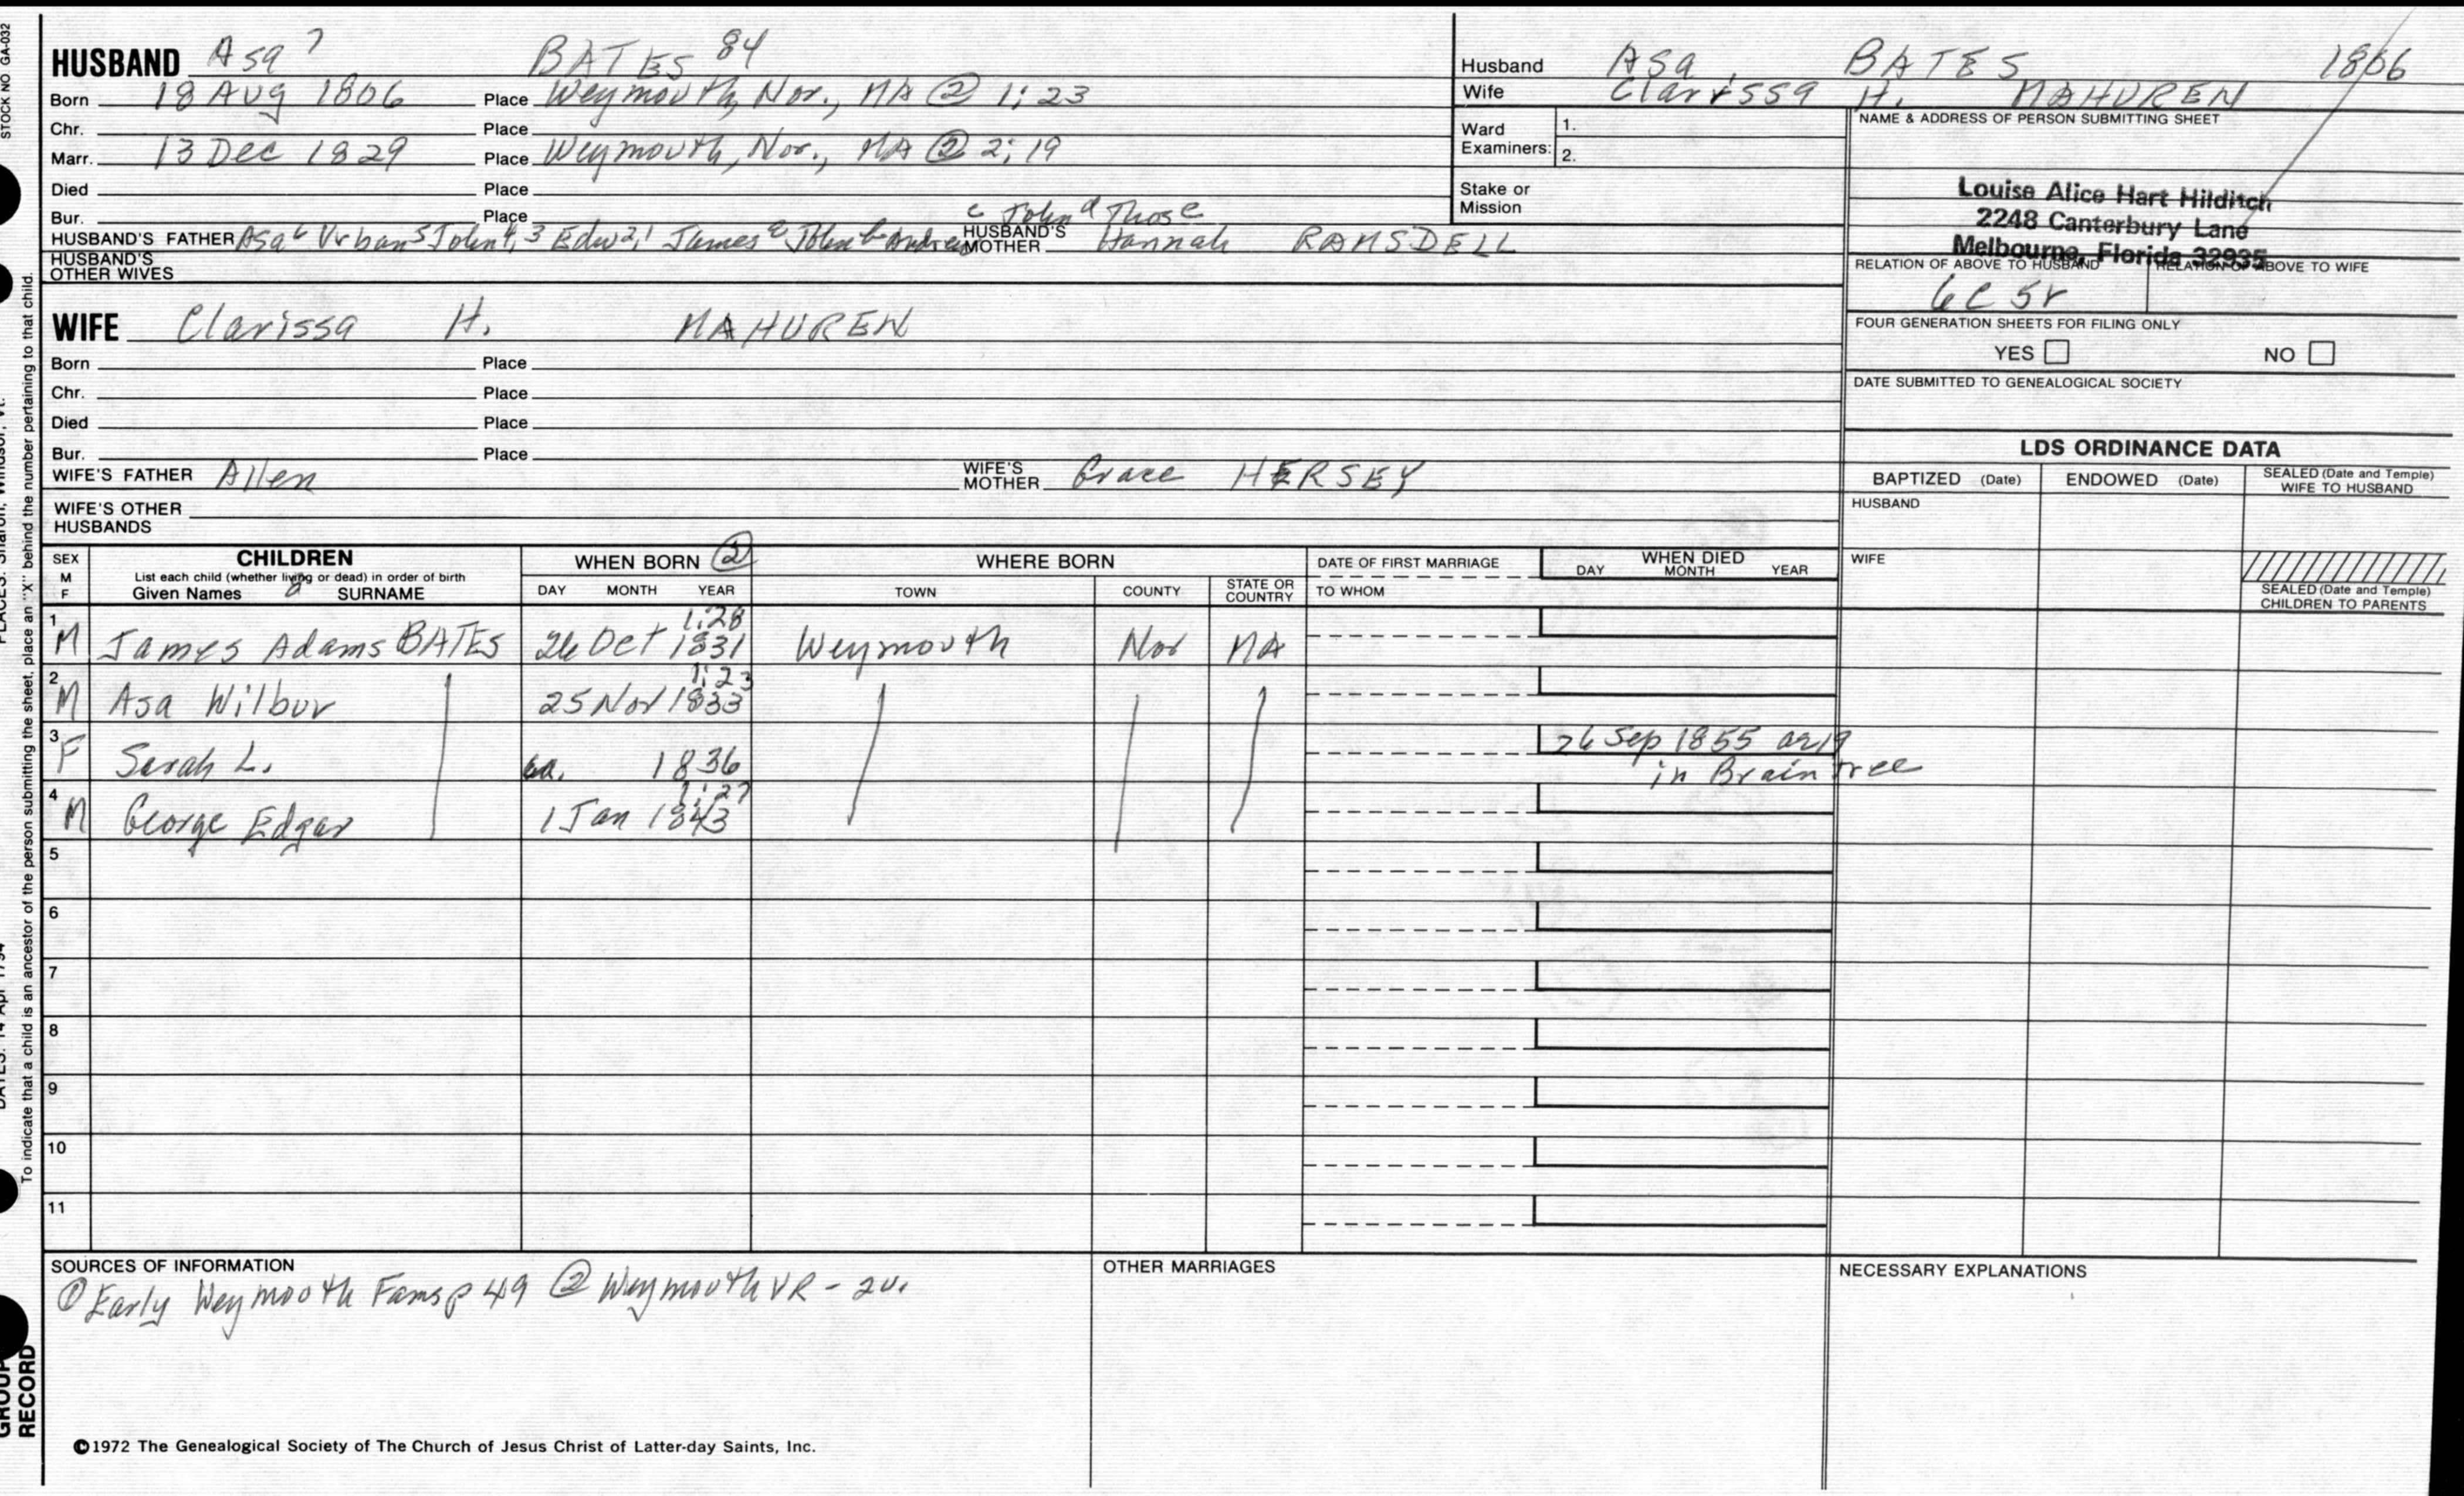 STOCK NO GA-032
HUSBAND Asa 7 BATES 84
Born 18 Aug 1806 Place Weymouth, Nor., MA @ 1:23
Chr. Place
Marr. 13 Dec 1829 Place Weymouth, Nor., MA ② 2:19
Died Place
Bur. Place
c John d Thos e
HUSBAND'S FATHER Asa 6 Urban 5 John 4, 3 Edw 2, 1 James a John b Andrew HUSBAND'S MOTHER Hannah RAMSDELL
HUSBAND'S OTHER WIVES
WIFE Clarissa H. MAHUREN
Born Place
Chr. Place
Died Place
Bur. Place
WIFE'S FATHER Allen WIFE'S MOTHER Grace HERSEY
WIFE'S OTHER HUSBANDS
Husband Asa BATES 1806
Wife Clarissa H. MAHUREN
Ward Examiners: 1.
2.
Stake or Mission
NAME & ADDRESS OF PERSON SUBMITTING SHEET
Louise Alice Hart Hilditch
2248 Canterbury Lane
Melbourne, Florida 32935
RELATION OF ABOVE TO HUSBAND RELATION OF ABOVE TO WIFE
6C 5r
FOUR GENERATION SHEETS FOR FILING ONLY
YES NO
DATE SUBMITTED TO GENEALOGICAL SOCIETY
LDS ORDINANCE DATA
BAPTIZED (Date) ENDOWED (Date) SEALED (Date and Temple) WIFE TO HUSBAND
HUSBAND
WIFE
SEALED (Date and Temple)
CHILDREN TO PARENTS
SEX M F
CHILDREN
List each child (whether living or dead) in order of birth
Given Names 8 SURNAME
WHEN BORN ②
DAY MONTH YEAR
WHERE BORN
TOWN COUNTY STATE OR COUNTRY
DATE OF FIRST MARRIAGE
TO WHOM
WHEN DIED
DAY MONTH YEAR
1:28
1 M James Adams BATES 26 Oct 1831 Weymouth Nor MA
1:23
2 M Asa Wilbur 25 Nov 1833
3 F Sarah L. ca. 1836 26 Sep 1855 ae 19
in Braintree
1:27
4 M George Edgar 1 Jan 1843
5
6
7
8
9
10
11
SOURCES OF INFORMATION
① Early Weymouth Fams p 49 ② Weymouth VR - 2v.
OTHER MARRIAGES
NECESSARY EXPLANATIONS
©1972 The Genealogical Society of The Church of Jesus Christ of Latter-day Saints, Inc.
To indicate that a child is an ancestor of the person submitting the sheet, place an "X" behind the number pertaining to that child.
PLACES: Sharon, Windsor, Vt.
DATES: 14 Apr 1794
GROUP
RECORD